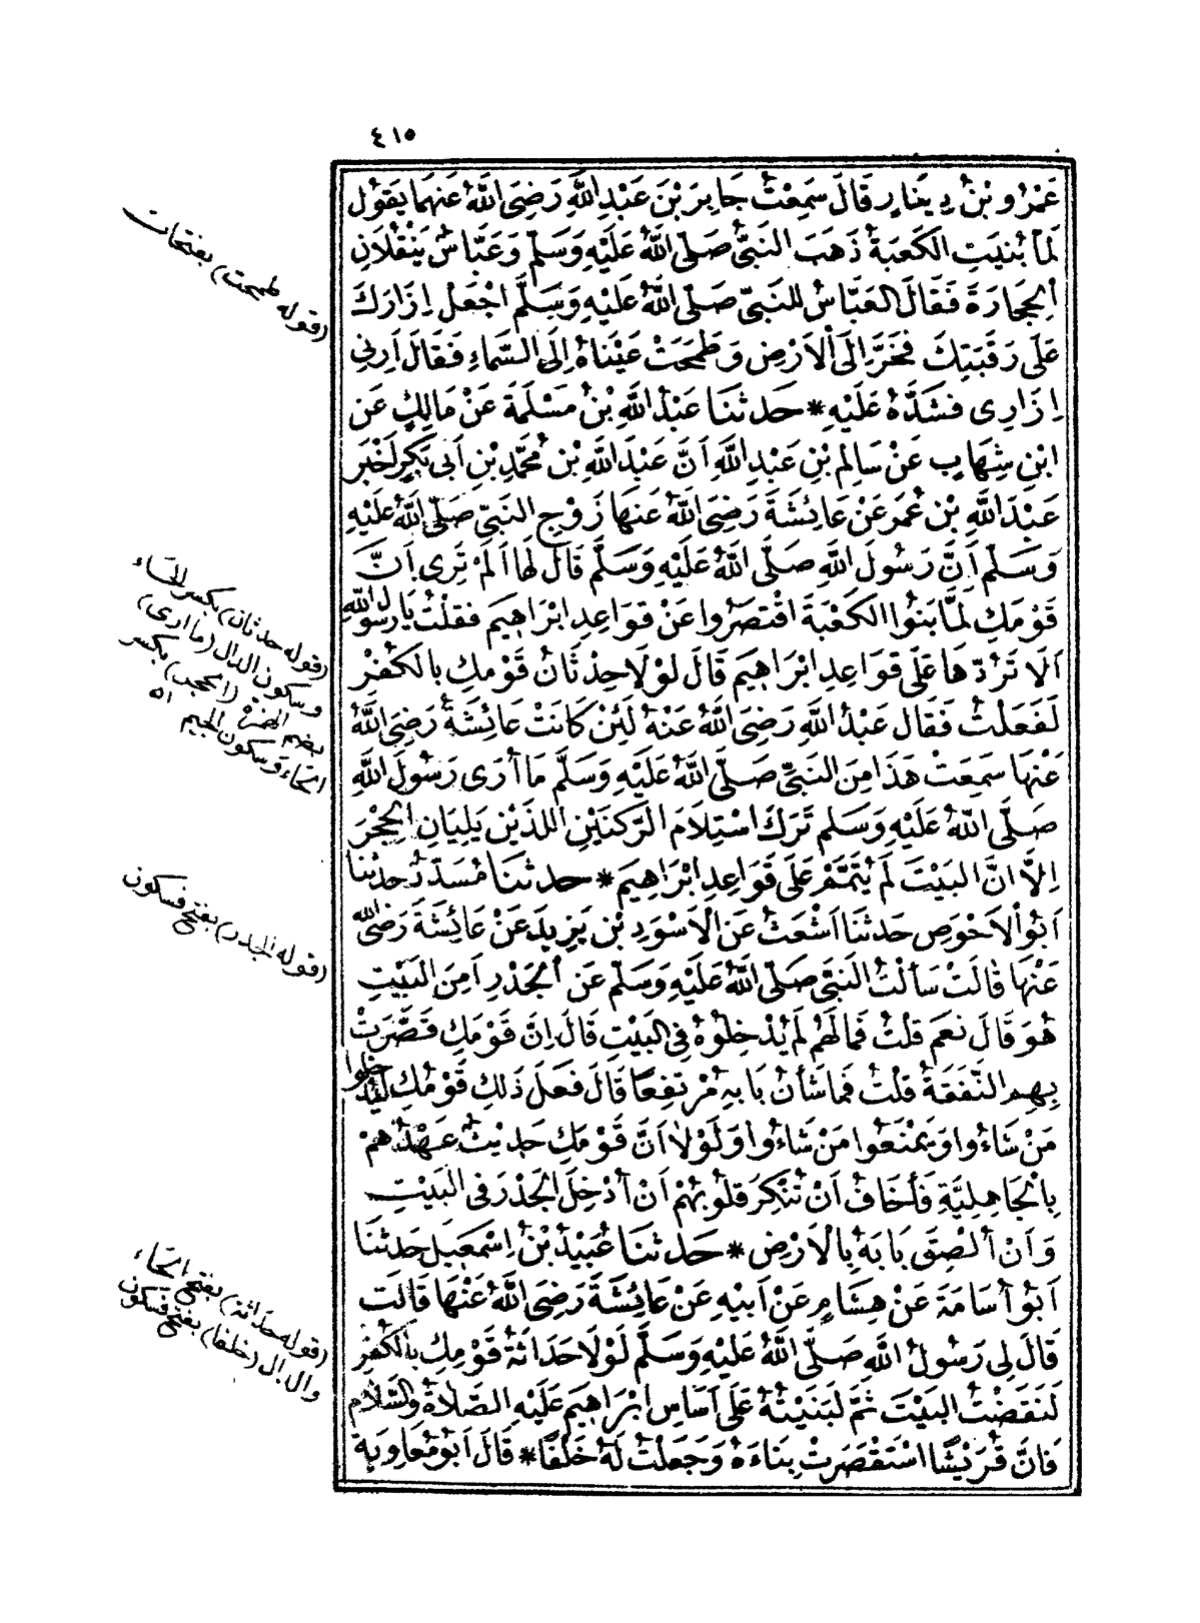 ٤١٥
عَمْرُو بْنُ دِينَارٍ قَالَ سَمِعْتُ جَابِرَ بْنَ عَبْدِ اللَّهِ رَضِيَ اللَّهُ عَنْهُمَا يَقُولُ
لَمَّا بُنِيَتِ الكَعْبَةُ ذَهَبَ النَّبِيُّ صَلَّى اللَّهُ عَلَيْهِ وَسَلَّمَ وَعَبَّاسٌ يَنْقُلَانِ
الْحِجَارَةَ فَقَالَ العَبَّاسُ لِلنَّبِيِّ صَلَّى اللَّهُ عَلَيْهِ وَسَلَّمَ اجْعَلْ إِزَارَكَ
عَلَى رَقَبَتِكَ فَخَرَّ إِلَى الْأَرْضِ وَطَمَحَتْ عَيْنَاهُ إِلَى السَّمَاءِ فَقَالَ أَرِنِي
إِزَارِي فَشَدَّهُ عَلَيْهِ * حَدَّثَنَا عَبْدُ اللَّهِ بْنُ مَسْلَمَةَ عَنْ مَالِكٍ عَنِ
ابْنِ شِهَابٍ عَنْ سَالِمِ بْنِ عَبْدِ اللَّهِ أَنَّ عَبْدَ اللَّهِ بْنَ مُحَمَّدِ بْنِ أَبِي بَكْرٍ أَخْبَرَ
عَبْدَ اللَّهِ بْنَ عُمَرَ عَنْ عَائِشَةَ رَضِيَ اللَّهُ عَنْهَا زَوْجِ النَّبِيِّ صَلَّى اللَّهُ عَلَيْهِ
وَسَلَّمَ أَنَّ رَسُولَ اللَّهِ صَلَّى اللَّهُ عَلَيْهِ وَسَلَّمَ قَالَ لَهَا أَلَمْ تَرَى أَنَّ
قَوْمَكِ لَمَّا بَنَوُا الكَعْبَةَ اقْتَصَرُوا عَنْ قَوَاعِدِ إِبْرَاهِيمَ فَقُلْتُ يَا رَسُولَ اللَّهِ
أَلَا تَرُدُّهَا عَلَى قَوَاعِدِ إِبْرَاهِيمَ قَالَ لَوْلَا حِدْثَانُ قَوْمِكِ بِالكُفْرِ
لَفَعَلْتُ فَقَالَ عَبْدُ اللَّهِ رَضِيَ اللَّهُ عَنْهُ لَئِنْ كَانَتْ عَائِشَةُ رَضِيَ اللَّهُ
عَنْهَا سَمِعَتْ هَذَا مِنَ النَّبِيِّ صَلَّى اللَّهُ عَلَيْهِ وَسَلَّمَ مَا أُرَى رَسُولَ اللَّهِ
صَلَّى اللَّهُ عَلَيْهِ وَسَلَّمَ تَرَكَ اسْتِلَامَ الرُّكْنَيْنِ اللَّذَيْنِ يَلِيَانِ الْحِجْرَ
إِلَّا أَنَّ البَيْتَ لَمْ يُتَمَّمْ عَلَى قَوَاعِدِ إِبْرَاهِيمَ * حَدَّثَنَا مُسَدَّدٌ حَدَّثَنَا
أَبُو الْأَحْوَصِ حَدَّثَنَا أَشْعَثُ عَنِ الْأَسْوَدِ بْنِ يَزِيدَ عَنْ عَائِشَةَ رَضِيَ اللَّهُ
عَنْهَا قَالَتْ سَأَلْتُ النَّبِيَّ صَلَّى اللَّهُ عَلَيْهِ وَسَلَّمَ عَنِ الْجَدْرِ أَمِنَ البَيْتِ
هُوَ قَالَ نَعَمْ قُلْتُ فَمَا لَهُمْ لَمْ يُدْخِلُوهُ فِي البَيْتِ قَالَ إِنَّ قَوْمَكِ قَصَّرَتْ
بِهِمُ النَّفَقَةُ قُلْتُ فَمَا شَأْنُ بَابِهِ مُرْتَفِعًا قَالَ فَعَلَ ذَلِكِ قَوْمُكِ لِيُدْخِلُوا
مَنْ شَاءُوا وَيَمْنَعُوا مَنْ شَاءُوا وَلَوْلَا أَنَّ قَوْمَكِ حَدِيثٌ عَهْدُهُمْ
بِالْجَاهِلِيَّةِ فَأَخَافُ أَنْ تُنْكِرَ قُلُوبُهُمْ أَنْ أُدْخِلَ الْجَدْرَ فِي البَيْتِ
وَأَنْ أُلْصِقَ بَابَهُ بِالْأَرْضِ * حَدَّثَنَا عُبَيْدُ بْنُ إِسْمَعِيلَ حَدَّثَنَا
أَبُو أُسَامَةَ عَنْ هِشَامٍ عَنْ أَبِيهِ عَنْ عَائِشَةَ رَضِيَ اللَّهُ عَنْهَا قَالَتْ
قَالَ لِي رَسُولُ اللَّهِ صَلَّى اللَّهُ عَلَيْهِ وَسَلَّمَ لَوْلَا حَدَاثَةُ قَوْمِكِ بِالكُفْرِ
لَنَقَضْتُ البَيْتَ ثُمَّ لَبَنَيْتُهُ عَلَى أَسَاسِ إِبْرَاهِيمَ عَلَيْهِ الصَّلَاةُ وَالسَّلَامُ
فَإِنَّ قُرَيْشًا اسْتَقْصَرَتْ بِنَاءَهُ وَجَعَلْتُ لَهُ خَلْفًا * قَالَ أَبُو مُعَاوِيَةَ
(قوله طمحت) بفتحات
(قوله حدثان) بكسر الحاء
وسكون الدال (ما أرى)
بضم الهمزة (الحجر) بكسر
الحاء وسكون الجيم اه
(قوله الجدر) بفتح فسكون
(قوله حداثة) بفتح الحاء
والدال (خلفا) بفتح فسكون